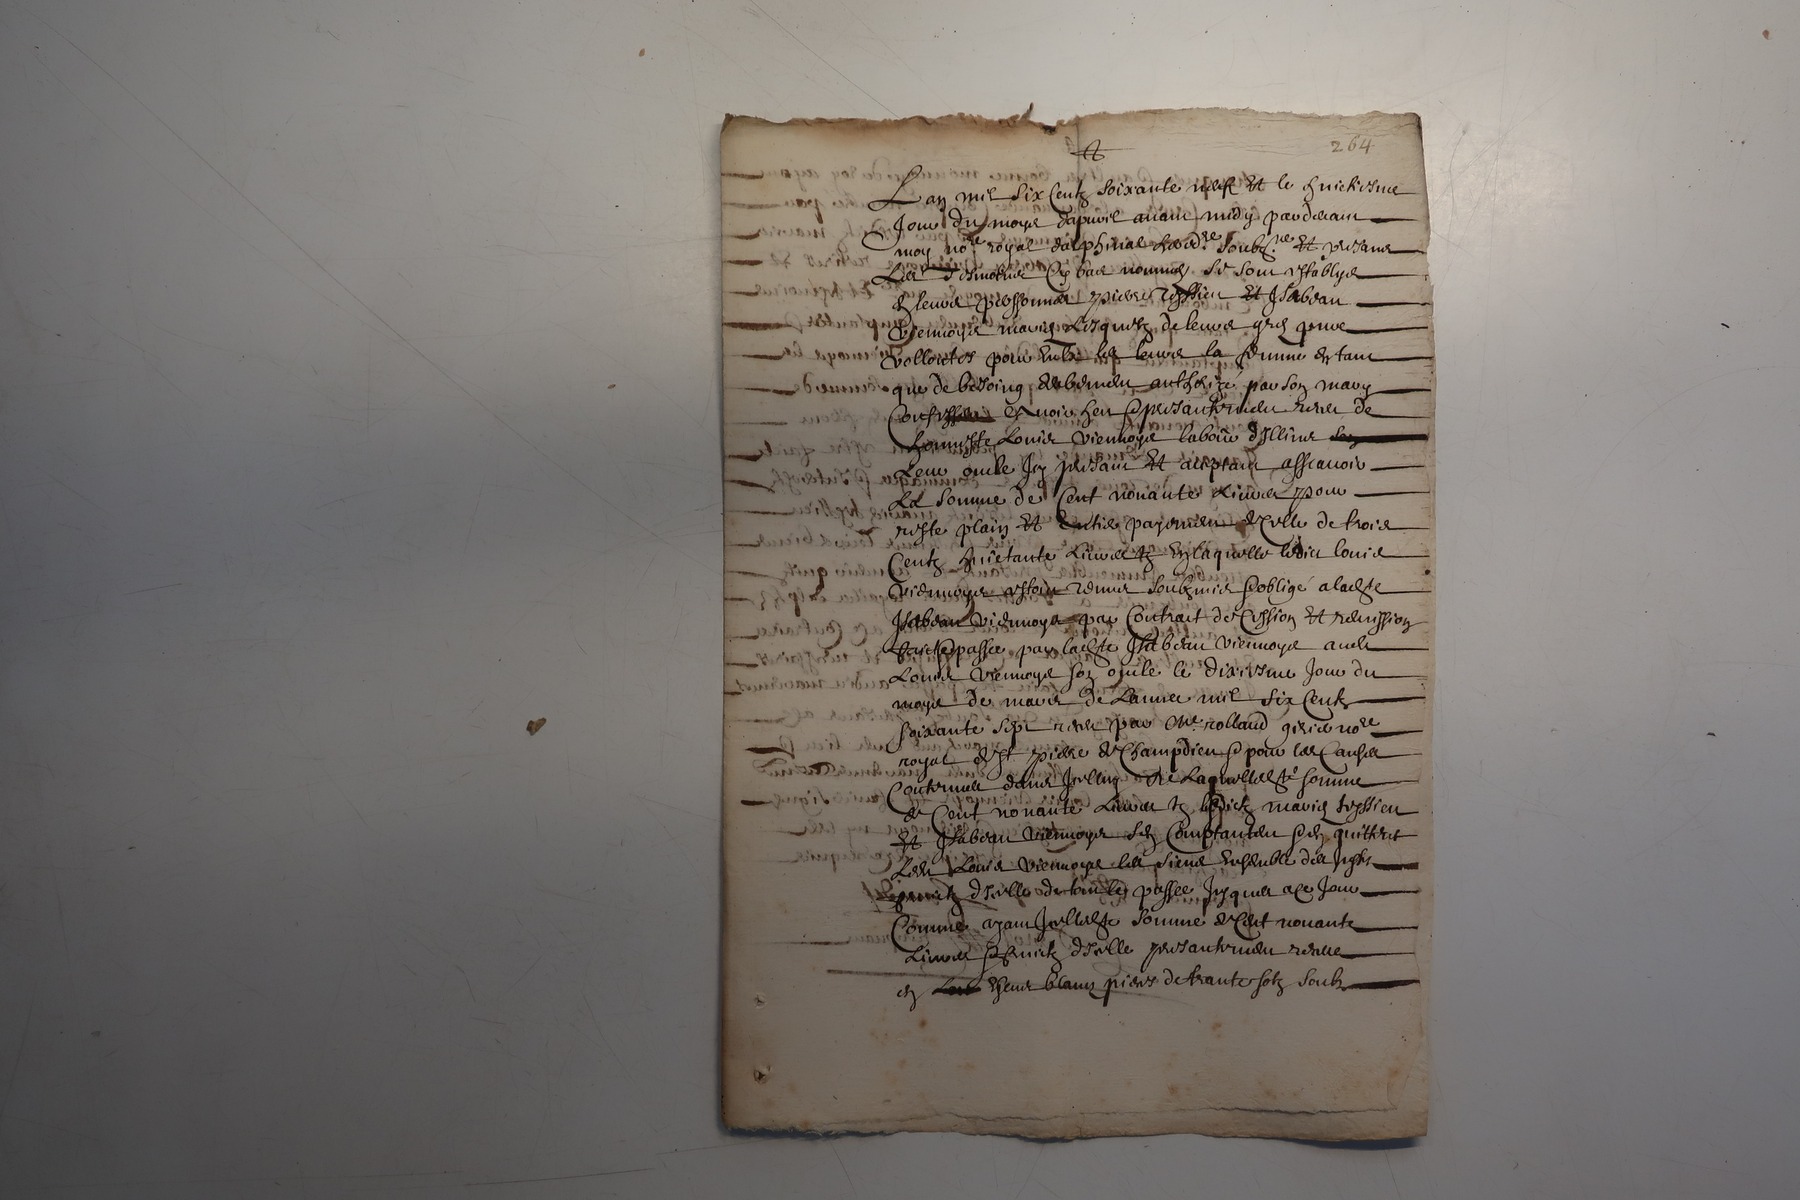 264
Lan mil six Centz soixante neuf Et le huictiesme
Jour du moys dapvril avant midy pardevant
moy no.re royal dalphinal heredre soubzne Et presans
Les tesmoins Cy bas nommes se sont establys
leurs personnes pierre Et Isabeau
Viennoys maries Lesquelz de leurs gres
vollontes pour eulx les leurs la femme en tant
que de besoing deubemen authorizé par son mary
Confessen avoir heu presantemen receu de
honneste Louis Viennoys labour dillins
Leur oncle Icy presant Et aceptant assavoir
La somme de Cent nonante Livres pour
reste plain Et entier payemen de Celle de trois
Centz huictante Livres tz En laquelle ledict louis
Viennoys estoit tenus soubzmis obligé a ladte
Isabeau Viennoys par Contrat de Cession Et remission
passee par ladte Isabeau Viennoys audt
Louis Viennoys son oncle le dixiesme Jour du
moys de mars de Lannee mil six Centz
soixante sept receu par Me rolland no.re
royal de St pierre de Champdieu pour les Causes
Contenues dans Icelluy De Laquelle ste somme
de Cent nonante Livres tz lesdictz maries
Et Isabeau Viennoys sen Comptanten quittent
Led Louis Viennoys les siens Ensemble des
dicelle de tout le passee Jusques a ce Jour
Comme ayant Icelle ste somme de Cent nonante
Livres dicelle presantemen receue
en blancz pieces de trante solz soubz